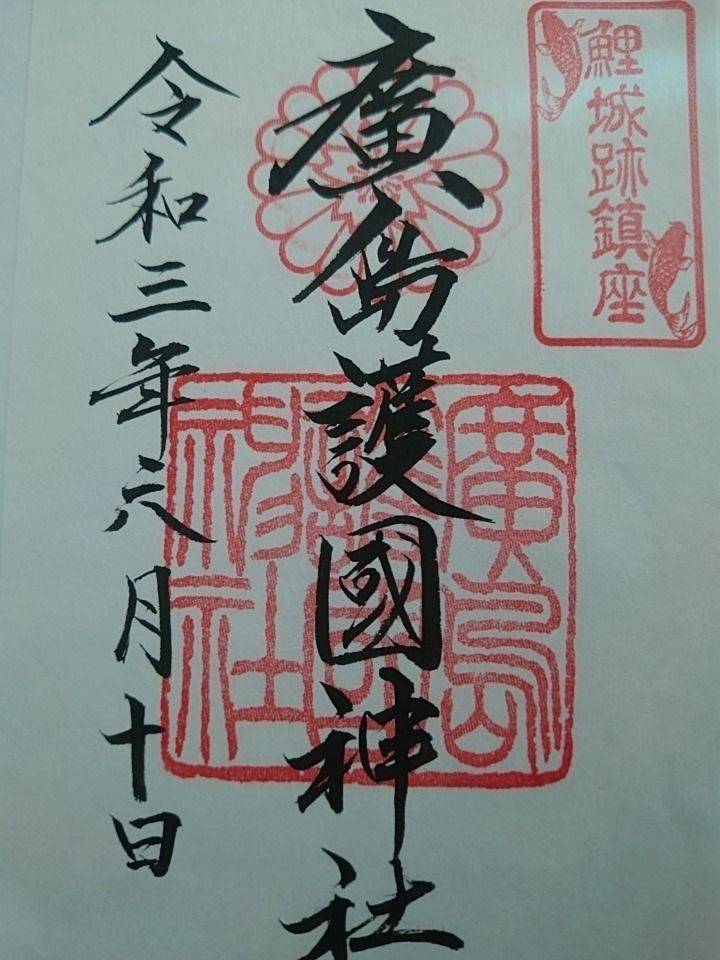 鯉城跡鎮座
廣島護國神社
廣島護國神社
令和三年六月十日